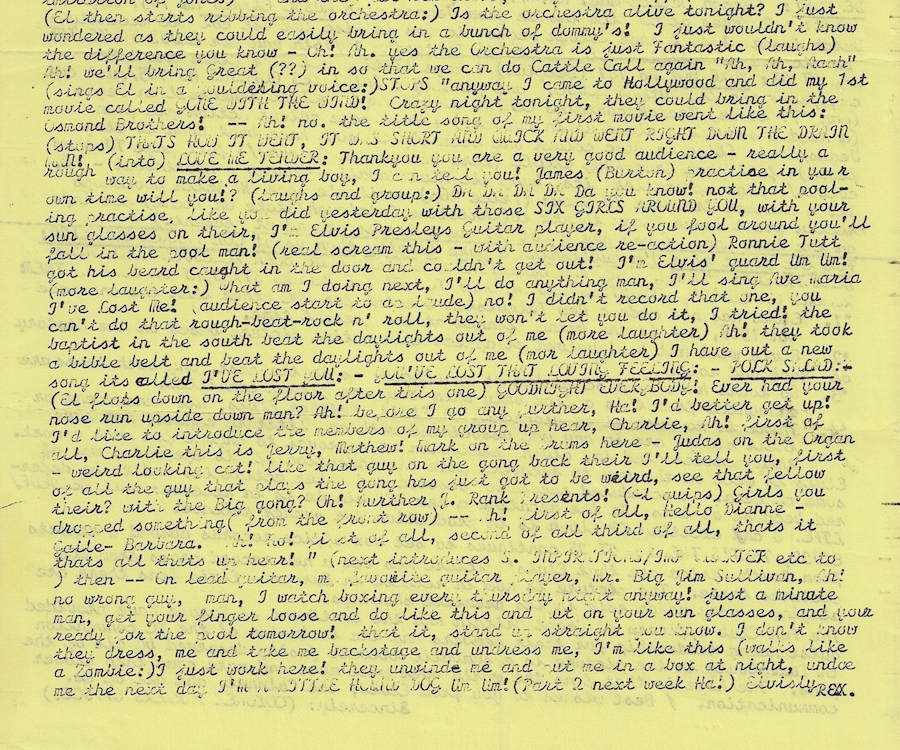 (El then starts ribbing the orchestra:) Is the orchestra alive tonight? I just
wondered as they could easily bring in a bunch of dommy's! I just wouldn't know
the difference you know - Oh! Ah. yes the Orchestra is just Fantastic (laughs)
Ah! we'll bring Great (??) in so that we can do Cattle Call again "Ah, Ah, Aaah"
(sings El in a voice:) STOPS "anyway I came to Hollywood and did my 1st
movie called GONE WITH THE WIND! Crazy night tonight, they could bring in the
Osmond Brothers! -- Ah! no. the title song of my first movie went like this:
(stops) THATS HOW IT WENT, IT WAS SHORT AND QUICK AND WENT RIGHT DOWN THE DRAIN
MAN! (into) LOVE ME TENDER: Thankyou you are a very good audience - really a
rough way to make a living boy, I can tell you! James (Burton) practise in your
own time will you!? (laughs and group:) Da you know! not that pool-
ing practise, like you did yesterday with those SIX GIRLS AROUND YOU, with your
sun glasses on their, I'm Elvis Presleys Guitar player, if you fool around you'll
fall in the pool man! (real scream this - with audience re-action) Ronnie Tutt
got his beard caught in the door and couldn't get out! I'm Elvis' guard Um Um!
(more laughter:) What am I doing next, I'll do anything man, I'll sing Ave Maria
I've Lost Me! (audience start to applaude) no! I didn't record that one, you
can't do that rough-beat-rock n' roll, they won't let you do it, I tried! the
baptist in the south beat the daylights out of me (more laughter) Ah! they took
a bible belt and beat the daylights out of me (mor laughter) I have out a new
song its called I'VE LOST YOU: - YOU'VE LOST THAT LOVING FEELING: - POLK SALAD:-
(El flops down on the floor after this one) GOODNIGHT EVERYBODY! Ever had your
nose run upside down man? Ah! before I go any further, Ha! I'd better get up!
I'd like to introduce the members of my group up hear, Charlie, Ah! first of
all, Charlie this is Jerry, Mathew! Mark on the Drums here - Judas on the Organ
- weird looking cat! like that guy on the gong back their I'll tell you, first
of all the guy that plays the gong has just got to be weird, see that fellow
their? with the Big gong? Oh! Aurther J. Rank Presents! (El quips) Girls you
dropped something( from the front row) -- Ah! First of all, Hello Dianne -
Gaile- Barbara. Ah! No! first of all, second of all third of all, thats it
thats all thats up hear! " (next introduces S. etc to
) then -- On lead guitar, my favourite guitar player, Mr. Big Jim Sullivan, Ah!
no wrong guy, man, I watch boxing every thursday night anyway! just a minate
man, get your finger loose and do like this and put on your sun glasses, and your
ready for the pool tomorrow! that it, stand up straight you know. I don't know
they dress, me and take me backstage and undress me, I'm like this (walks like
a Zombie:) I just work here! they unwinde me and put me in a box at night, undoe
me the next day I'M A LITTLE HOUND DOG Um Um! (Part 2 next week Ha!) Elvisly REX.